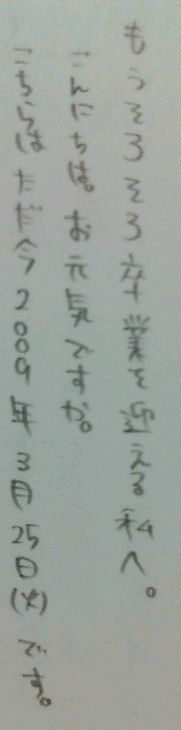 もうそろそろ卒業を迎える私へ。
こんにちは。お元気ですか。
こちらはただ今2009年3月25日(火)です。